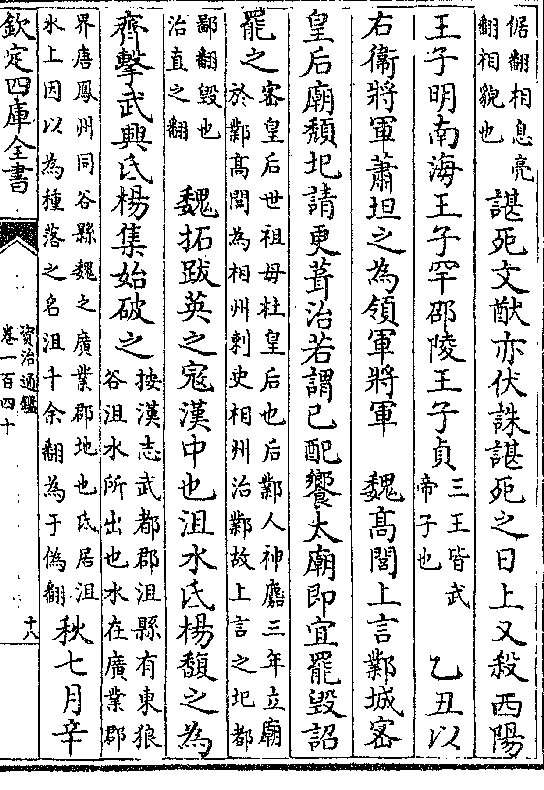 倨翻相息亮
翻相貌也
諶死文猷亦伏誅諶死之日上又殺西陽
王子明南海王子罕邵陵王子貞
三王皆武
帝子也
乙丑以
右衛將軍蕭坦之為領軍將軍　魏髙閭上言鄴城宻
皇后廟頽圮請更葺治若謂已配饗太廟即宜罷毁詔
罷之
宻皇后世祖母杜皇后也后鄴人神䴥三年立廟
於鄴髙閭為相州刺史相州治鄴故上言之圮都
鄙翻毁也
治直之翻
魏拓跋英之寇漢中也沮水氐楊馥之為
齊擊武興氐楊集始破之
按漢志武都郡沮縣有東狼
谷沮水所出也水在廣業郡
界唐鳳州同谷縣魏之廣業郡地也氐居沮
水上因以為種落之名沮千余翻為于偽翻
秋七月辛
欽定四庫全書
資治通鑑
卷一百四十
十八